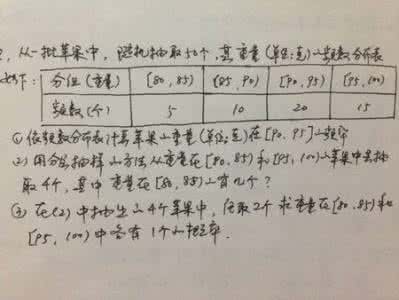 2, 从一批苹果中, 随机抽取50个, 其重量(单位:克)的频数分布表
如下: 分组(重量) [80, 85) [85, 90) [90, 95) [95, 100)
频数(个) 5 10 20 15
① 依频数分布表计算苹果的重量(单位:克)在[90, 95)的频率
(2) 用分层抽样的方法从重量在[80, 85)和[95, 100)的苹果中共抽
取4个, 其中重量在[80, 85)的有几个?
(3) 在(2)中抽出的4个苹果中, 任取2个 求重量在[80, 85)和
[95, 100)中各有1个的概率.